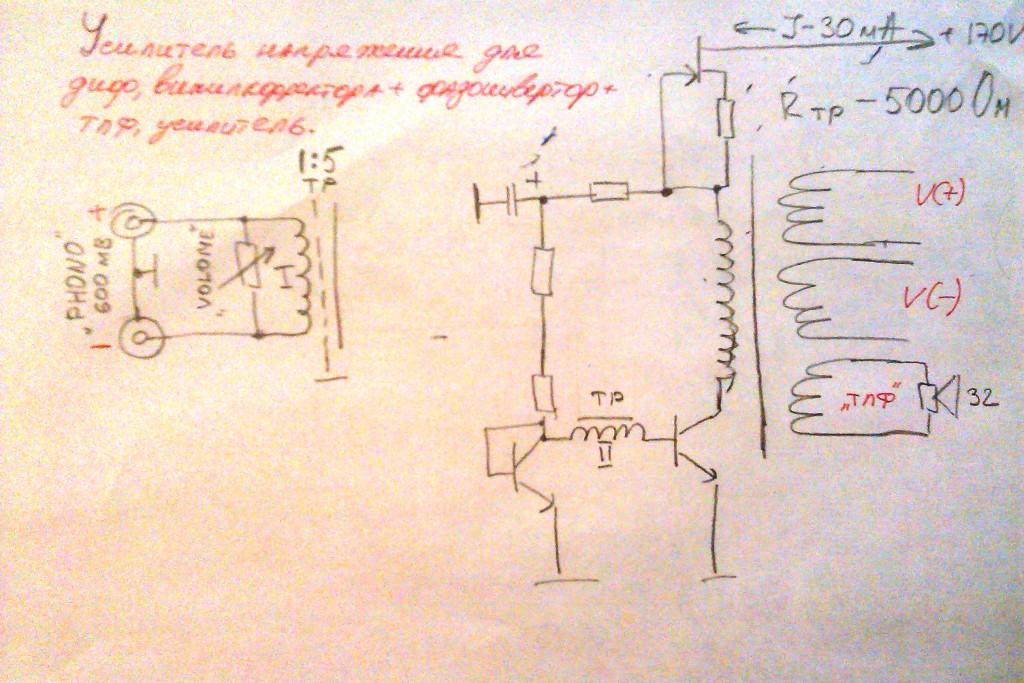 Усилитель напряжения для
дифф, винилкорректора + фазоинвертор +
тлф, усилитель.
← I-30мА → + 170V
Rтр - 5000 Ом
1:5
тр
+
"PHONO"
600 мВ
"VOLUME"
I
−
+
V(+)
V(-)
"тлф"
32
ТР
II